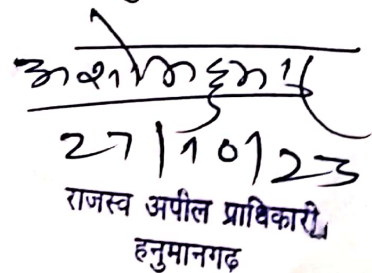 अशोक कुमार
27/10/23
राजस्व अपील प्राधिकारी
हनुमानगढ़